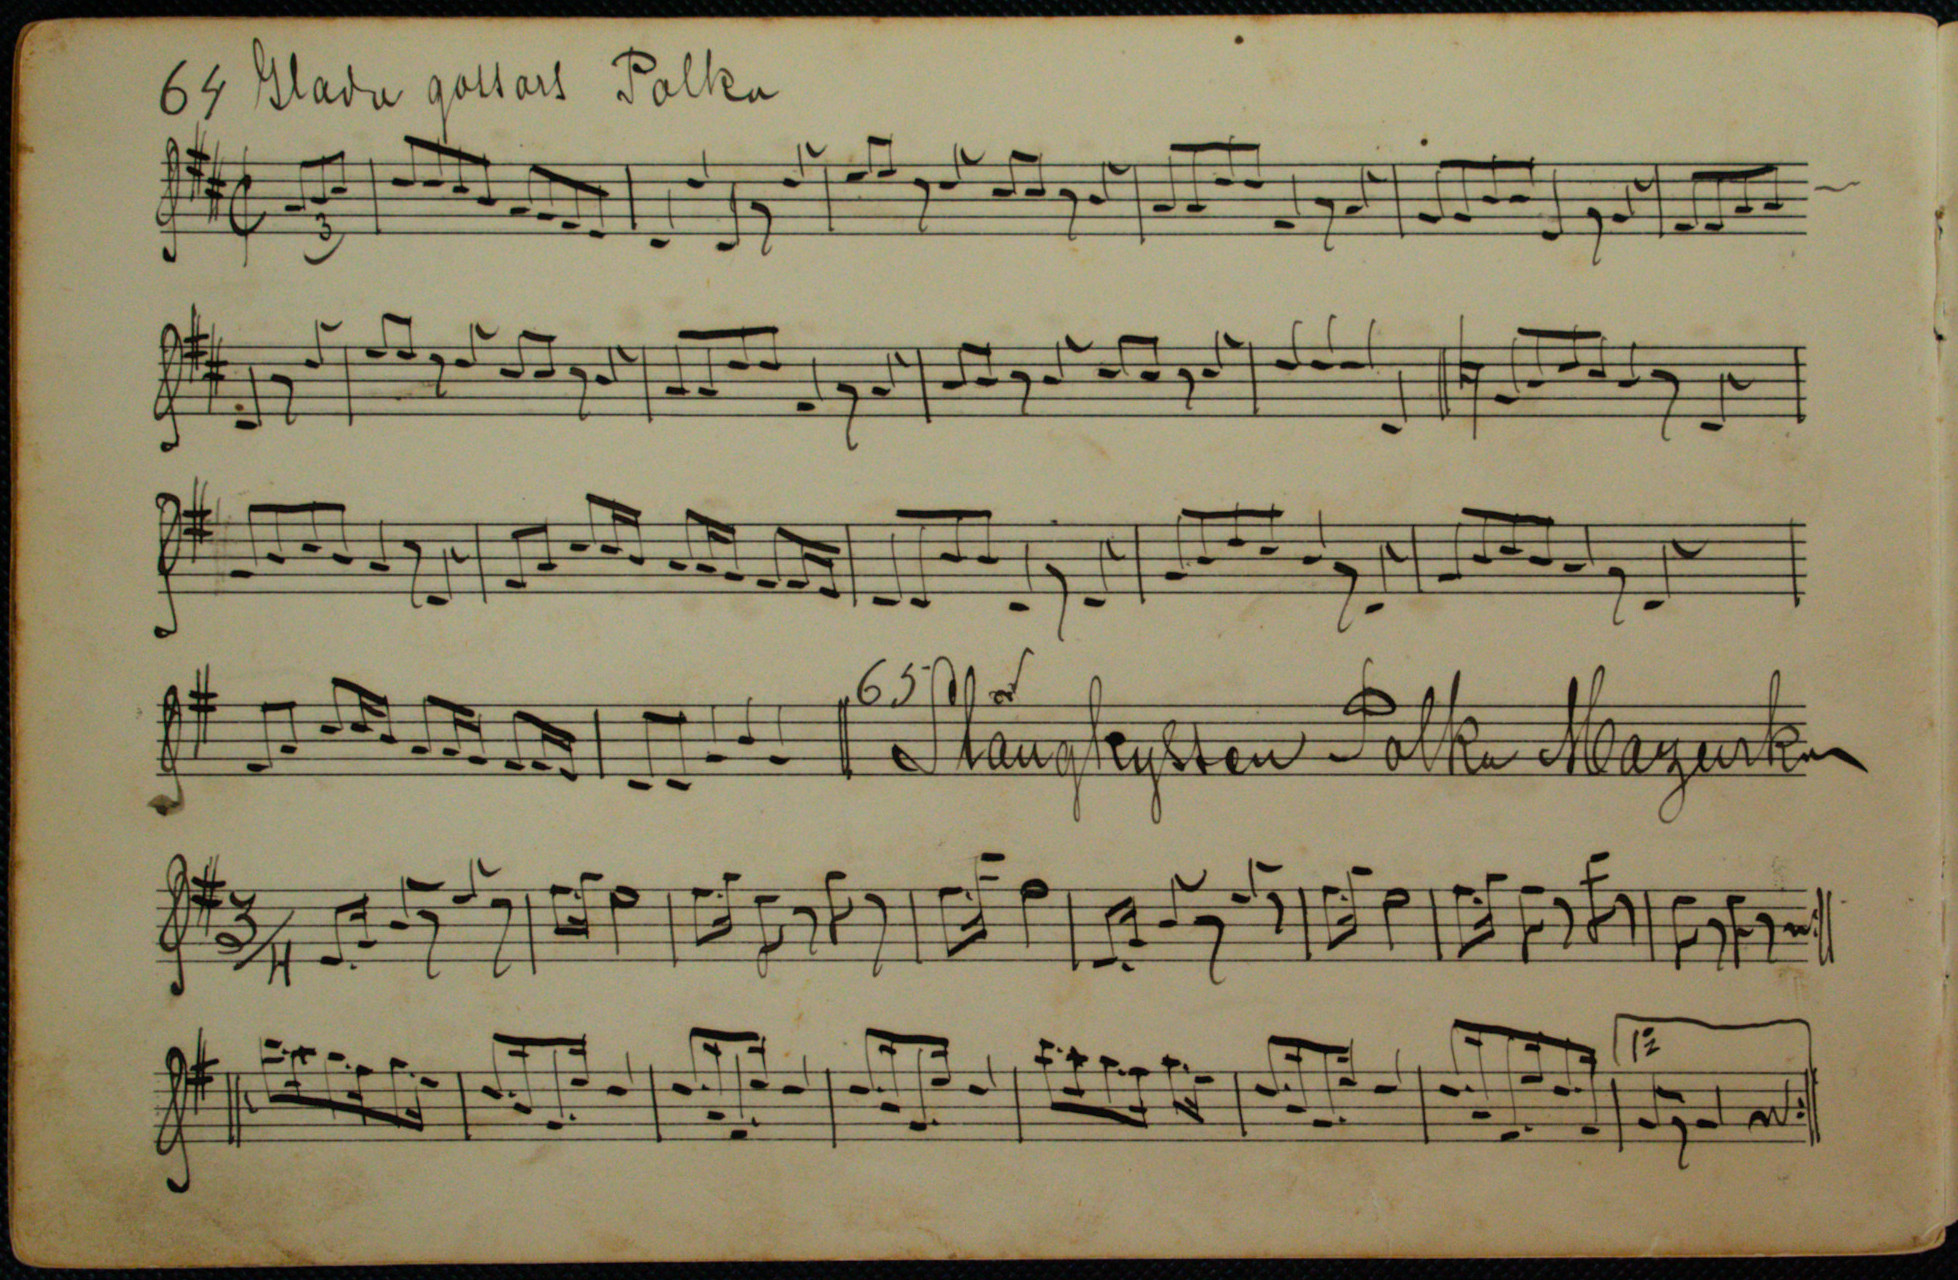 64 Glada gossars Polka
3
65 Stångkysten Polka Mazurka
3/4
1a